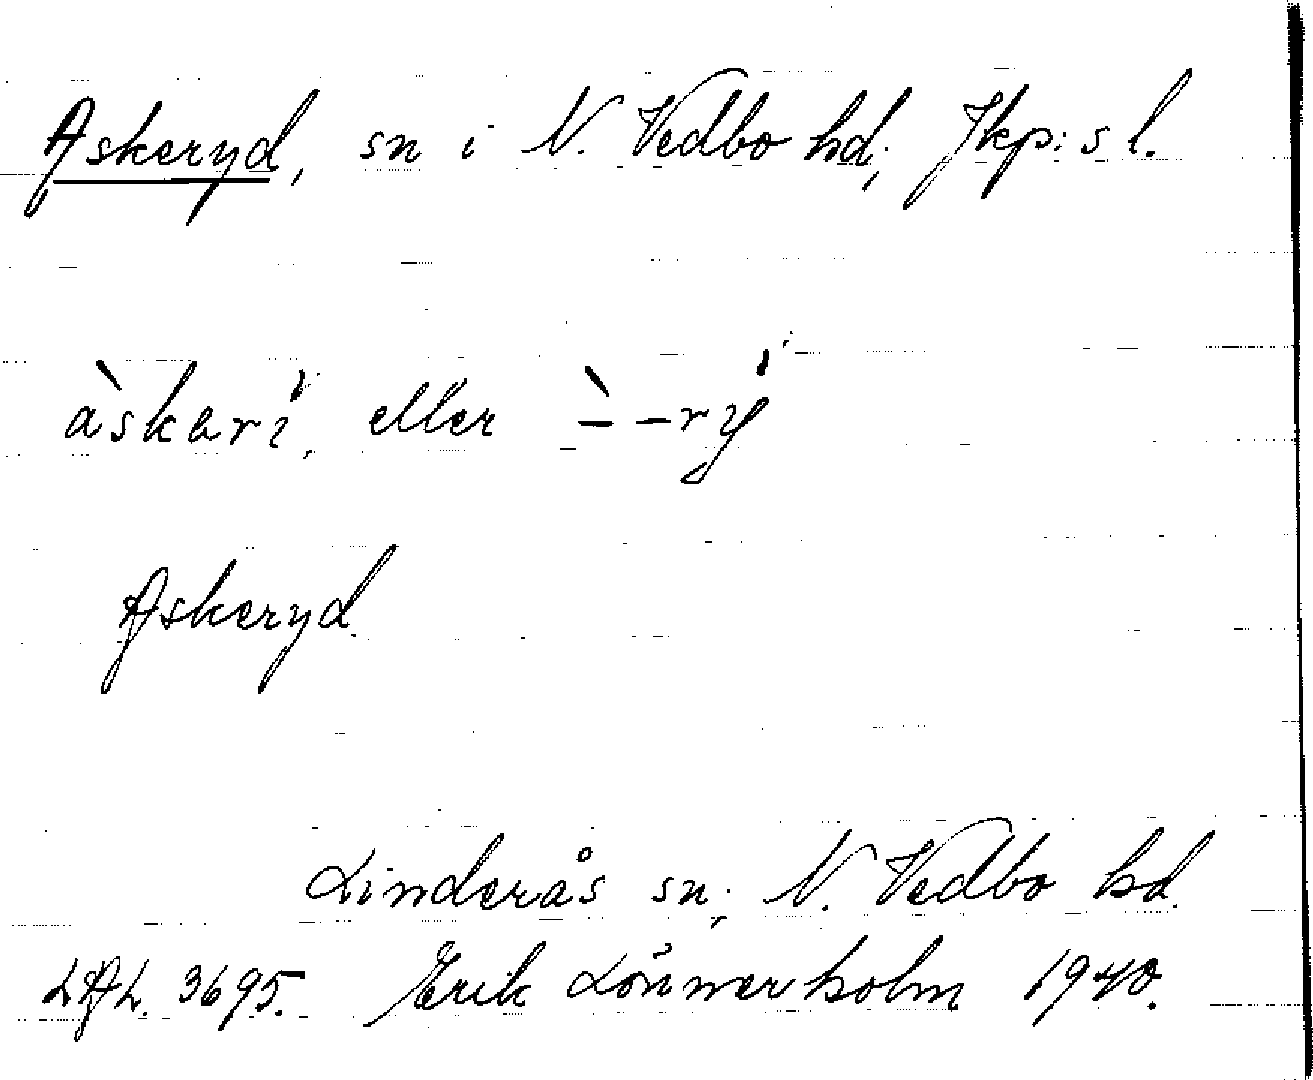 Askeryd, sn i N. Vedbo hd; Jkp:s l.
àskarí, eller ˋ– –rý
Askeryd
Linderås sn; N. Vedbo hd.
LAL. 3695. Erik Lönnerholm 1940.